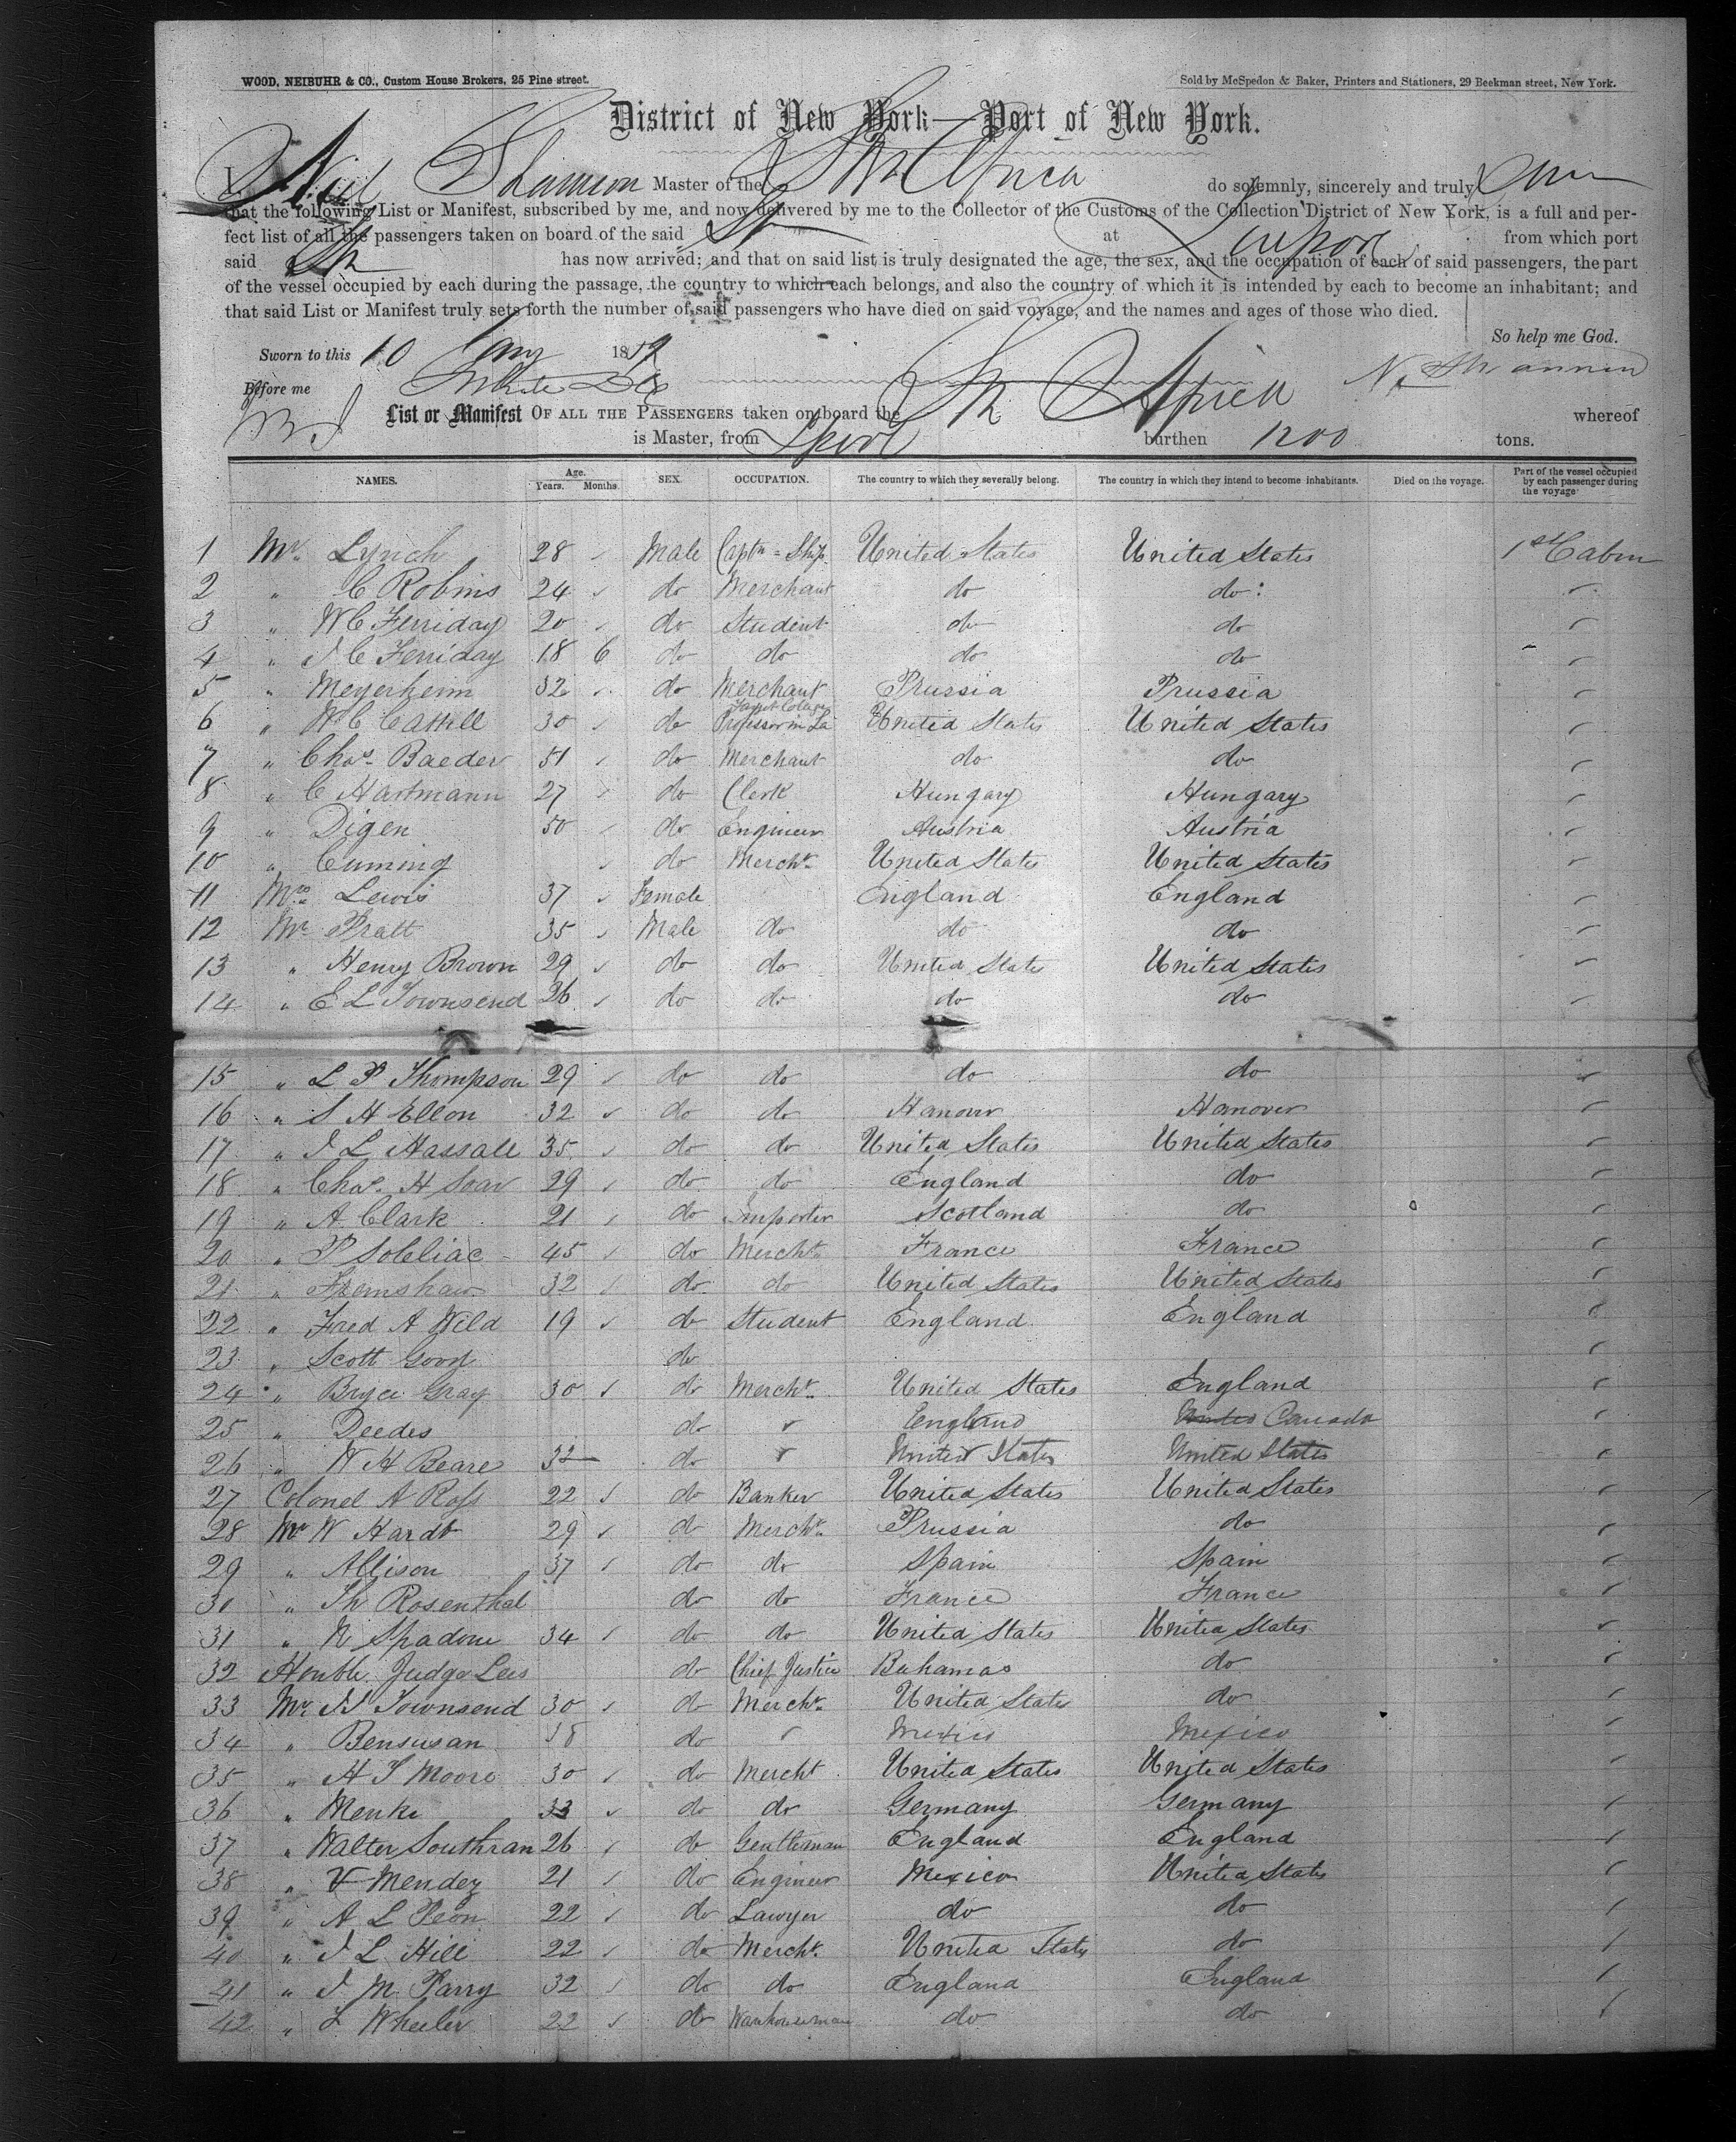 WOOD, NEIBUHR & CO., Custom House Brokers, 25 Pine street.
Sold by McSpedon & Baker, Printers and Stationers, 29 Beekman street, New York.
District of New York—Port of New York.
I, Neil Shannon Master of the Str Africa do solemnly, sincerely and truly
that the following List or Manifest, subscribed by me, and now delivered by me to the Collector of the Customs of the Collection District of New York, is a full and per-
fect list of all the passengers taken on board of the said Str at from which port
said Str has now arrived; and that on said list is truly designated the age, the sex, and the occupation of each of said passengers, the part
of the vessel occupied by each during the passage, the country to which each belongs, and also the country of which it is intended by each to become an inhabitant; and
that said List or Manifest truly sets forth the number of said passengers who have died on said voyage, and the names and ages of those who died.
So help me God.
Sworn to this 10 1859
Before me N. Shannon
List or Manifest OF ALL THE PASSENGERS taken on board the Str Africa whereof
is Master, from Lpool burthen 1200 tons.
NAMES. Age. Years. Months. SEX. OCCUPATION. The country to which they severally belong. The country in which they intend to become inhabitants. Died on the voyage. Part of the vessel occupied by each passenger during the voyage
1 Mr. Lynch 28 Male Captn = Ship United States United States 1st Cabin
2 " C Robins 24 do Merchant do do
3 " W C Ferriday 20 do Student do do
4 " J C Ferriday 18 6 do do do do
5 " Meyerheim 32 do Merchant Prussia Prussia
6 " W C Cattell 30 do Professor in La United States United States
7 " Chas. Baeder 51 do Merchant do do
8 " C Hartmann 27 do Clerk Hungary Hungary
9 " Digen 50 do Engineer Austria Austria
10 " Cuming do Mercht. United States United States
11 Mrs. Lewis 37 Female England England
12 Mr Pratt 35 Male do do do
13 " Henry Brown 29 do do United States United States
14 " E L Townsend 26 do do do do
15 " L P Thompson 29 do do do do
16 " S H Ellon 32 do do Hanover Hanover
17 " J L Hassall 35 do do United States United States
18 " Chas. H Soar 29 do do England do
19 " A. Clark 21 do Importer Scotland do
20 " P Soleliac 45 do Mercht. France France
21 " 32 do do United States United States
22 " Fred A Wild 19 do Student England England
23 " Scott Good do
24 " Bryce Gray 30 do Mercht. United States England
25 " Deedes do " England United Canada
26 " W H Beare 32 do " United States United States
27 Colonel A Ross 22 do Banker United States United States
28 Mr W Hardt 29 do Mercht. Prussia do
29 " Allison 37 do do Spain Spain
30 " Th Rosenthal do do France France
31 " N Spadone 34 do do United States United States
32 Honble Judge Lees do Chief Justice Bahamas do
33 Mr Townsend 30 do Mercht. United States do
34 " Bensusan 38 do " Mexico Mexico
35 " H T Moore 30 do Mercht United States United States
36 " Menke 33 do do Germany Germany
37 " Walter Southran 26 do Gentleman England England
38 " V Mendez 21 do Engineer Mexico United States
39 " A L Peon 22 do Lawyer do do
40 " J L Hill 22 do Mercht. United States do
41 " J M Parry 32 do do England England
42 " F Wheeler 22 do Warehouseman do do